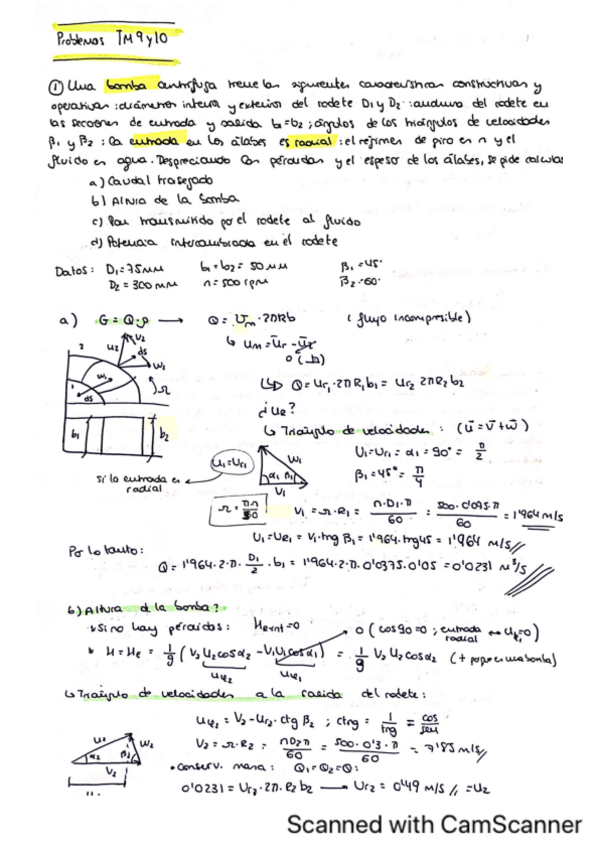 Problemas TM 9 y 10
① Una bomba centrífuga tiene las siguientes características constructivas y
operativas: diámetros interior y exterior del rodete D₁ y D₂: anchura del rodete en
las secciones de entrada y salida b₁=b₂; ángulos de los triángulos de velocidades
β₁ y β₂: la entrada en los álabes es radial: el régimen de giro en n y el
fluido es agua. Despreciando las pérdidas y el espesor de los álabes, se pide calcular
a) Caudal trasegado
b) Altura de la bomba
c) Par transmitido por el rodete al fluido
d) Potencia intercambiada en el rodete
Datos: D₁=75mm b₁=b₂=50mm β₁=45°
D₂=300mm n=500rpm β₂=60°
a) G=Q·ρ → Q= Um·2πRb (flujo incompresible)
↳ Um=Ur-Uz
↳ Q=Ur₁·2πR₁b₁=Ur₂ 2πR₂b₂
¿UR?
↳ Triángulo de velocidades: (u=v+w)
U₁=Ur₁=α₁=90°=π/2
β₁=45°=π/4
U₁=Ur₁
si la entrada es
radial
Ω=πn/30
V₁=Ω·R₁=n·D₁·π/60=500·0'075·π/60=1'964m/s
U₁=UR₁=V₁·trg β₁=1'964·trg45=1'964 m/s
Por lo tanto:
Q=1'964·2·π·D₁/2·b₁=1'964·2·π·0'0375·0'05=0'0231 m³/s
b) Altura de la bomba?
↳ Si no hay pérdidas: Hrint=0
0 (cos90=0; entrada radial ↔ Uφ₁=0)
H=He=1/g(V₂U₂cosα₂-V₁U₁cosα₁)=1/g V₂U₂cosα₂ (+ porque es una bomba)
Uφ₂ Uφ₁
↳ Triángulo de velocidades a la salida del rodete:
Uφ₂=V₂-Ur₂·ctg β₂; ctng=1/trg=cos/sen
V₂=Ω·R₂=nD₂π/60=500·0'3·π/60=7'85m/s
• Conserv. masa: Q₁=Q₂=Q:
0'0231=Ur₂·2π·R₂b₂ → Ur₂=0'49 m/s =U₂
Scanned with CamScanner